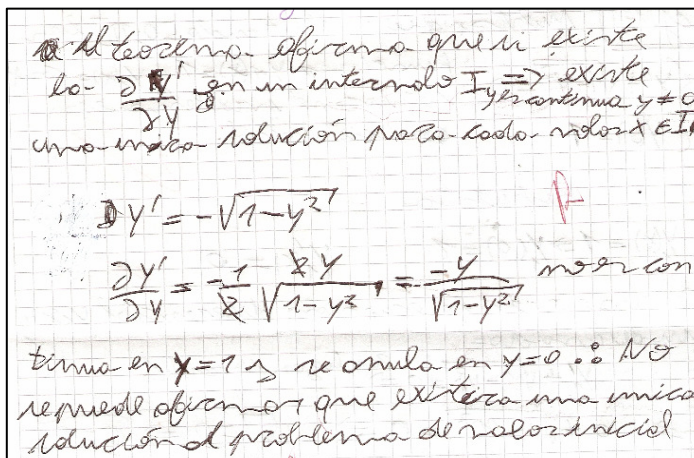 El teorema afirma que si existe
la ∂y'/∂y en un intervalo I y es continua y ≠ 0 => existe
una única solución para cada valor x ∈ I
y' = -√(1-y²)
∂y'/∂y = -1/2 2y/√(1-y²) = -y/√(1-y²) no es con
tinua en y=1 y se anula en y=0 ∴ No
se puede afirmar que exitira una unica
solución al problema de valor inicial